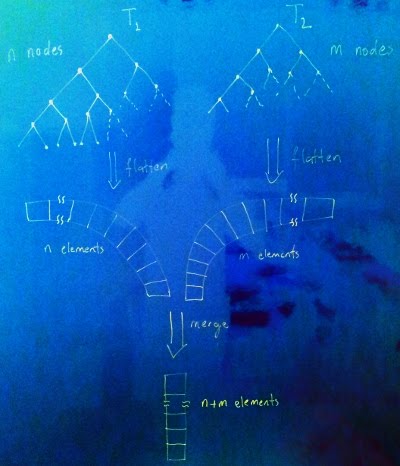 T1
T2
n nodes
m nodes
flatten
flatten
n elements
m elements
merge
n+m elements